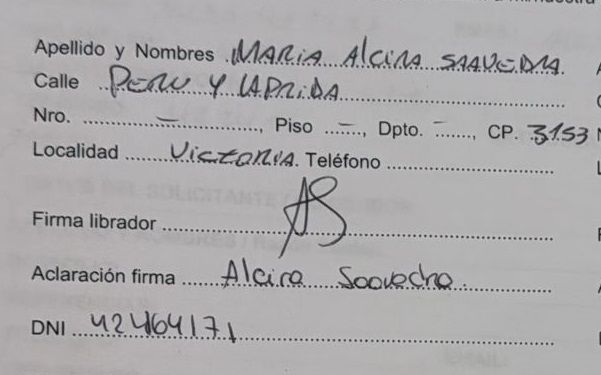 Apellido y Nombres MARIA Alcira SAAVEDRA
Calle PERU Y LAPRIDA
Nro. –, Piso –, Dpto. –, CP. 3153
Localidad VICTORIA. Teléfono
Firma librador AS
Aclaración firma Alcira Saavedra
DNI 42464171